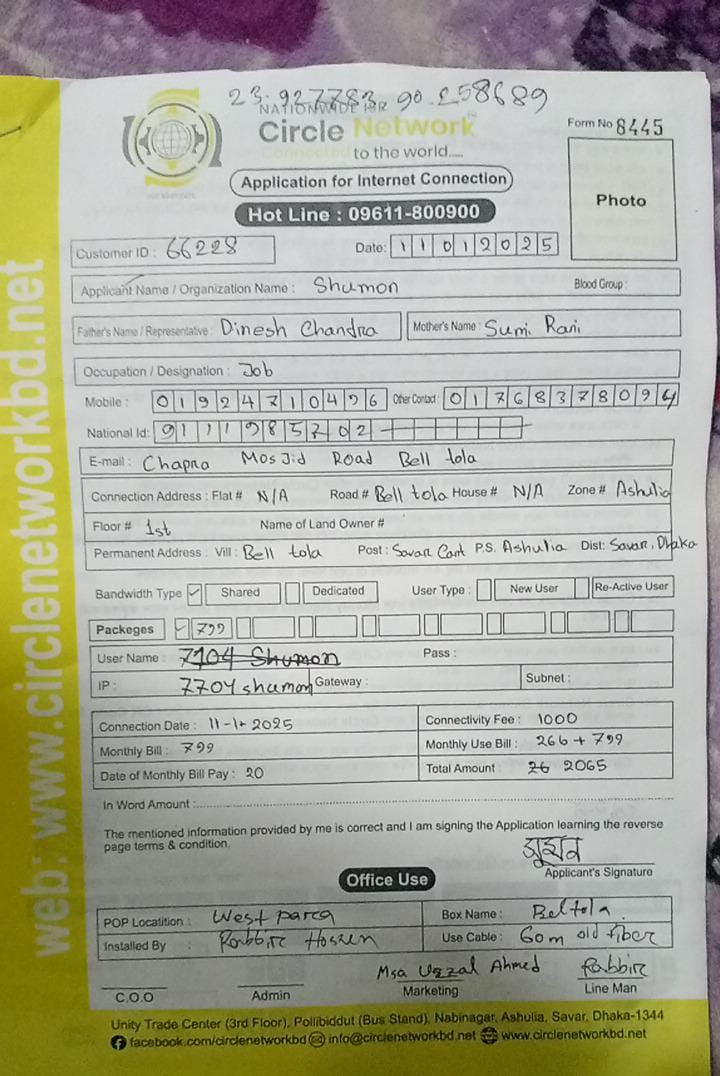 23.927783 90.258689
NATIONWIDE ISP
Circle Network
Connected to the world.....
Form No 8445
Application for Internet Connection
Photo
Hot Line : 09611-800900
Customer ID : 66228
Date: 11012025
Applicant Name / Organization Name : Shumon Blood Group :
Father's Name / Representative : Dinesh Chandra Mother's Name : Sumi Rani
Occupation / Designation : Job
Mobile : 01924710496 Other Contact : 01768378094
National Id: 9111985702
E-mail : Chapra Mosjid Road Bell tola
Connection Address : Flat # N/A Road # Bell tola House # N/A Zone # Ashulia
Floor # 1st Name of Land Owner #
Permanent Address : Vill : Bell tola Post : Savar Cant P.S. Ashulia Dist: Savar, Dhaka
Bandwidth Type Shared Dedicated User Type : New User Re-Active User
Packeges 799
User Name : 7104 Shumon Pass :
IP : 7704 shumon Gateway : Subnet :
Connection Date : 11-1-2025 Connectivity Fee : 1000
Monthly Bill : 799 Monthly Use Bill : 266 + 799
Date of Monthly Bill Pay : 20 Total Amount : 26 2065
In Word Amount :
The mentioned information provided by me is correct and I am signing the Application learning the reverse
page terms & condition.
সুমন
Applicant's Signature
Office Use
POP Locatition : West Parca Box Name : Beltola
Installed By : Rabbir Hossen Use Cable : 60m old fiber
Uzzal Ahmed Rabbir
C.O.O Admin Marketing Line Man
Unity Trade Center (3rd Floor), Pollibiddut (Bus Stand), Nabinagar, Ashulia, Savar, Dhaka-1344
facebook.com/circlenetworkbd info@circlenetworkbd.net www.circlenetworkbd.net
web: www.circlenetworkbd.net